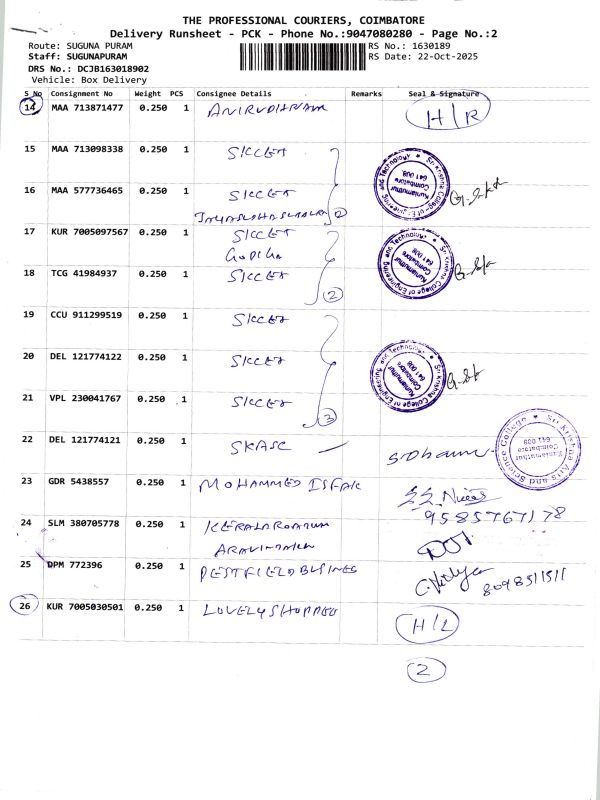 THE PROFESSIONAL COURIERS, COIMBATORE
Delivery Runsheet - PCK - Phone No.:9047080280 - Page No.:2
Route: SUGUNA PURAM
RS No.: 1630189
Staff: SUGUNAPURAM
RS Date: 22-Oct-2025
DRS No.: DCJB163018902
Vehicle: Box Delivery
S No Consignment No Weight PCS Consignee Details Remarks Seal & Signature
14 MAA 713871477 0.250 1 H/R
15 MAA 713098338 0.250 1 SKCET
16 MAA 577736465 0.250 1 SKCET
2
17 KUR 7005097567 0.250 1 SKCET
Gopika
18 TCG 41984937 0.250 1 SKCET
2
19 CCU 911299519 0.250 1 SKCET
20 DEL 121774122 0.250 1 SKCET
21 VPL 230041767 0.250 1 SKCET
3
Sri Krishna College of Engineering and Technology
Kuniamuthur
Coimbatore
641 008
Sri Krishna College of Engineering and Technology
Kuniamuthur
Coimbatore
641 008
Sri Krishna College of Engineering and Technology
Kuniamuthur
Coimbatore
641 008
22 DEL 121774121 0.250 1 SKASC
Sri Krishna Arts and Science College
Kuniamuthur
Coimbatore
641 008
23 GDR 5438557 0.250 1 MOHAMMED ISFAK
9585767178
24 SLM 380705778 0.250 1
25 DPM 772396 0.250 1 PESTFIELD BUSINES
8098511511
26 KUR 7005030501 0.250 1 LOVELY SHOPPEE H/L
2